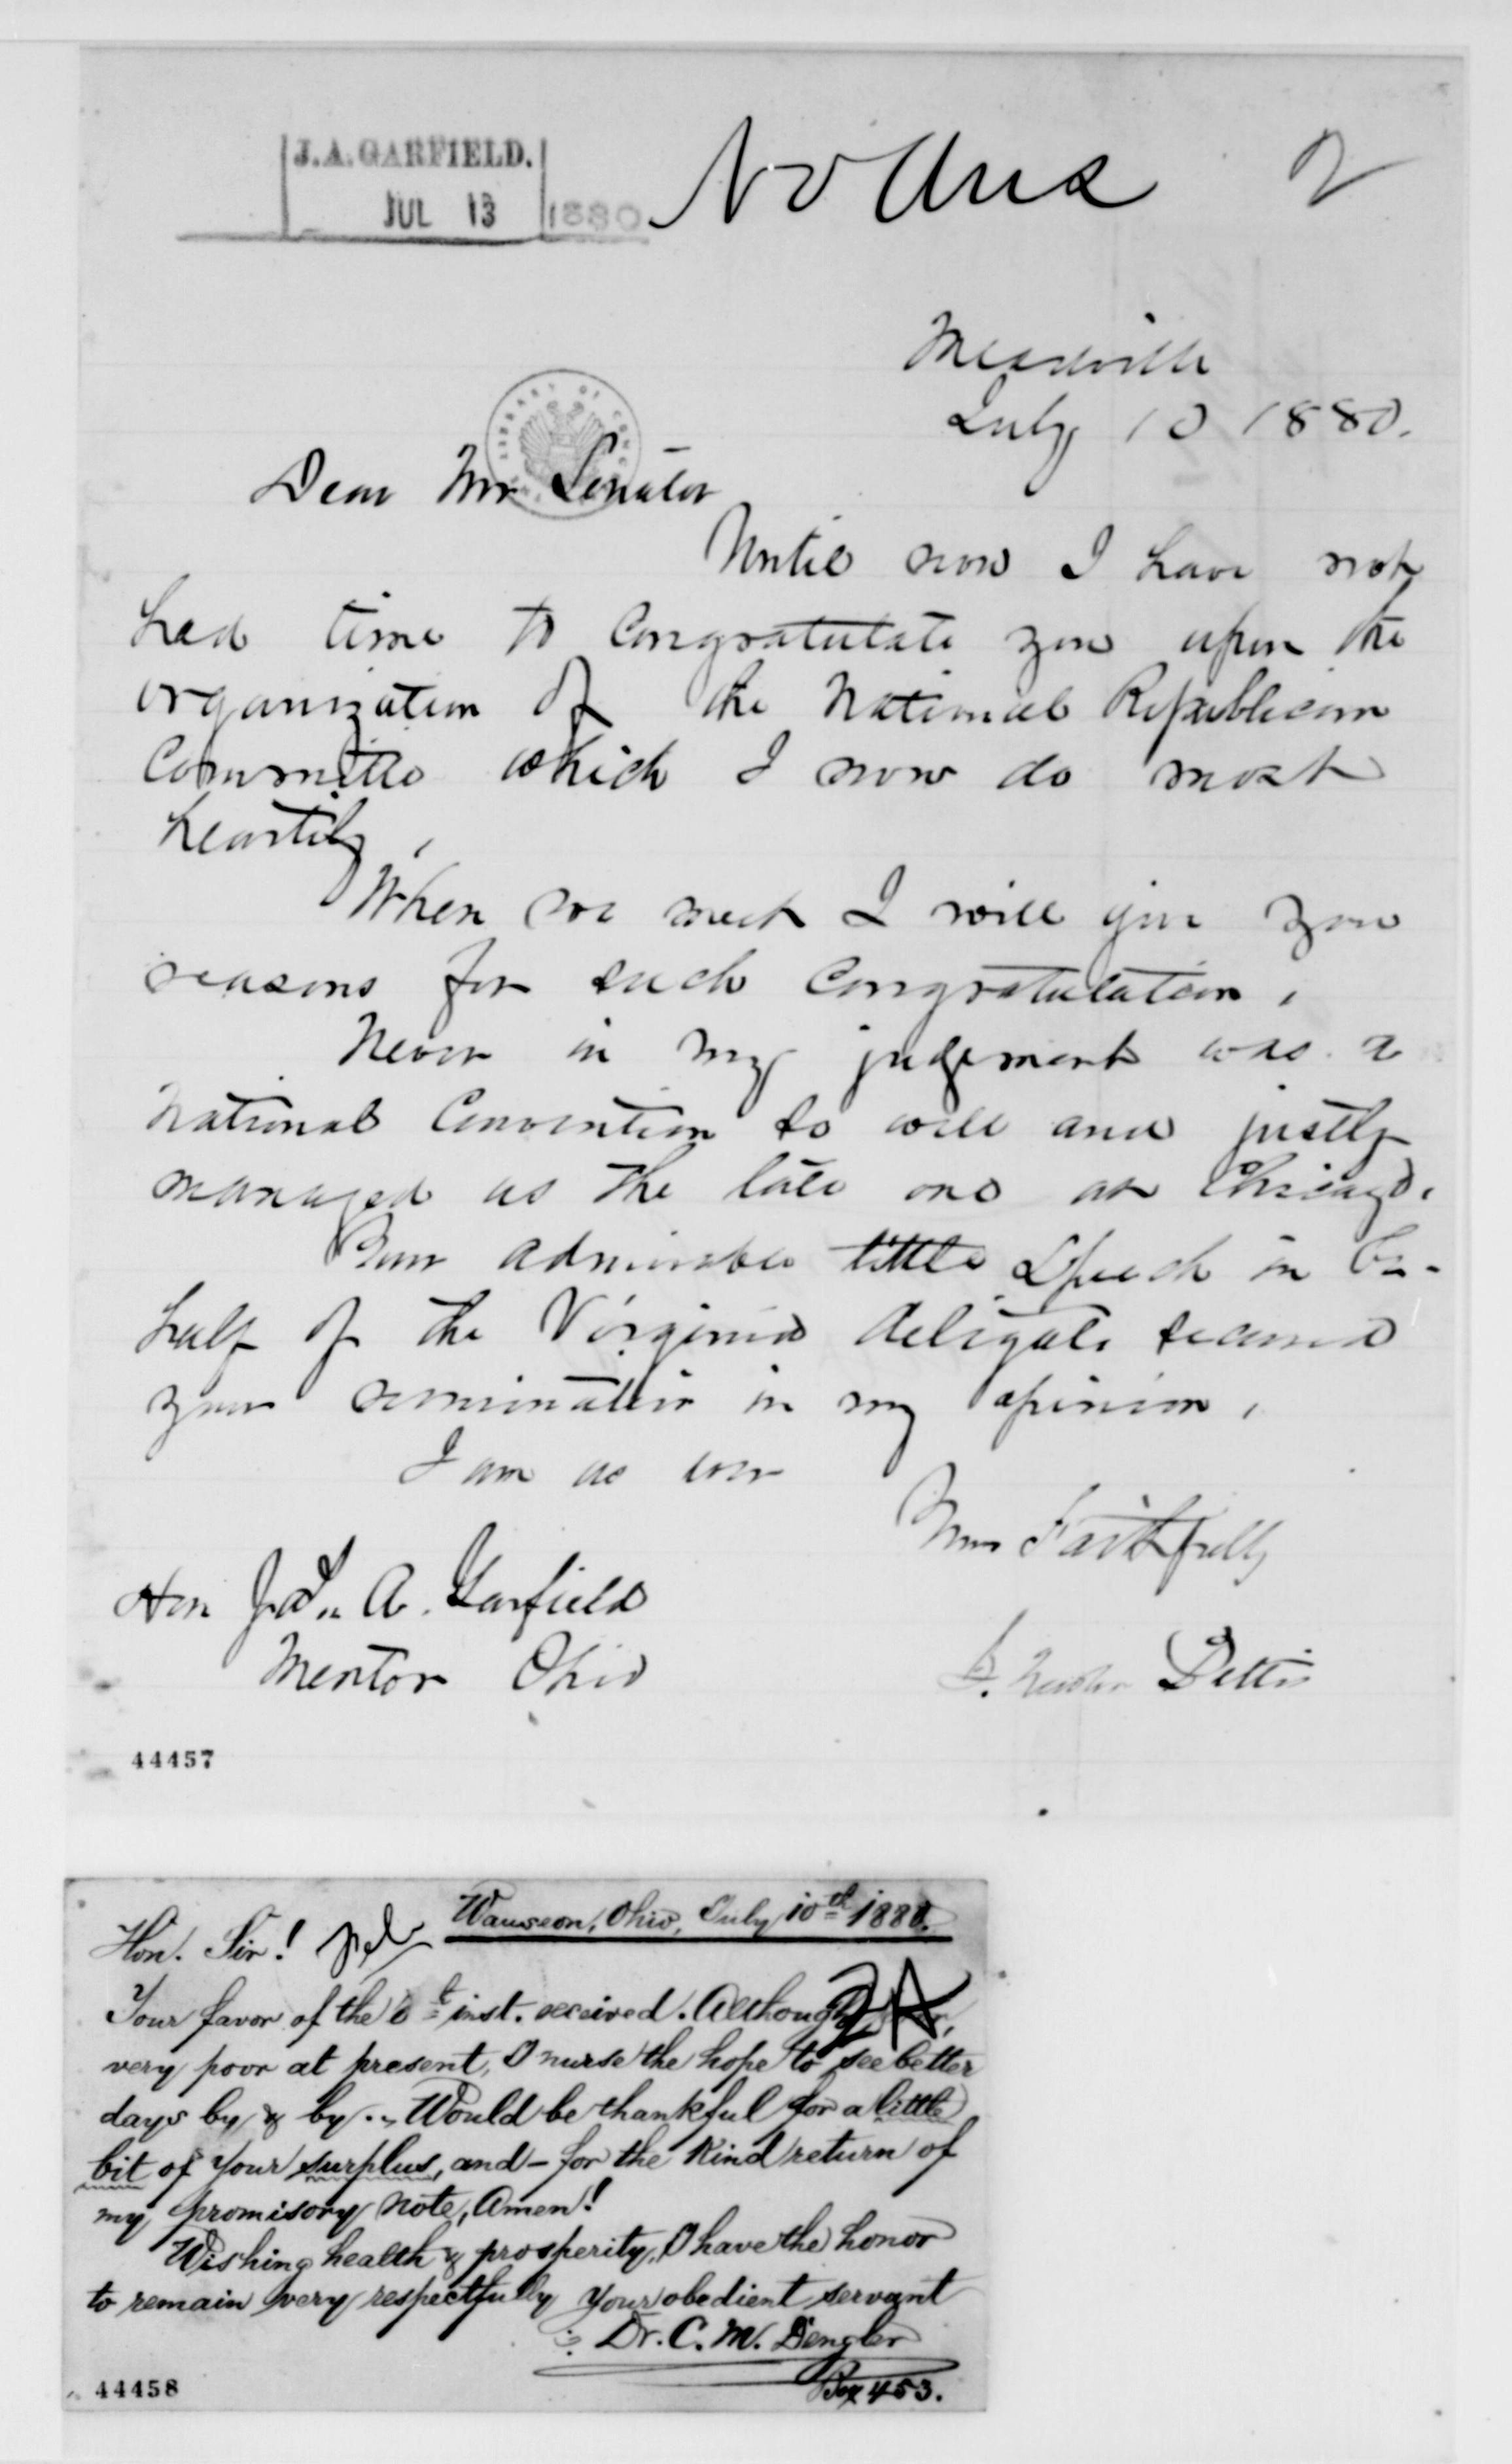 J.A. GARFIELD.
JUL 13 1880
No Ans 2
Meadville
July 10 1880.
Dear Mr Senator
Until now I have not
had time to Congratulate you upon the
organization of the National Republican
Committee which I now do most
heartily,
When we meet I will give you
reasons for such Congratulation,
Never in my judgement was a
National Convention so well and justly
managed as the late one at Chicago.
Your admirable little Speech in be-
half of the Virginia delegate secured
your nomination in my opinion,
I am as ever
Your Faithfully
Hon Jas. A. Garfield
Mentor Ohio
S. Newton Pettis
44457
Wauseon, Ohio, July 10th 1880.
Hon. Sir!
Your favor of the inst. received. Although
very poor at present, I nurse the hope to see better
days by & by. Would be thankful for a little
bit of your surplus, and - for the kind return of
my promisory note, Amen!
Wishing health & prosperity, I have the honor
to remain very respectfully your obedient servant
Dr. C. M. Dengler
Box 453.
44458